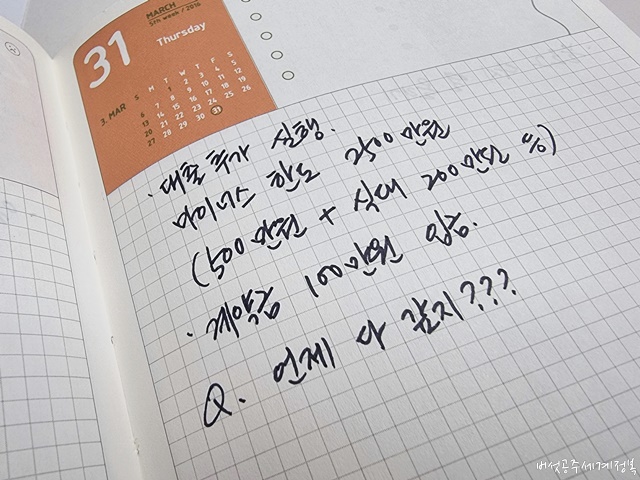 31
MARCH
5th week / 2016
Thursday
3. MAR
S M T W T F S
1 2 3 4 5
6 7 8 9 10 11 12
13 14 15 16 17 18 19
20 21 22 23 24 25 26
27 28 29 30 31
· 대출 추가 실행.
마이너스 한도 2500만원
(500만원 + 200만원 )
· 계약금 100만원 입금.
Q. 언제 다 갚지???
버섯공주세계정복